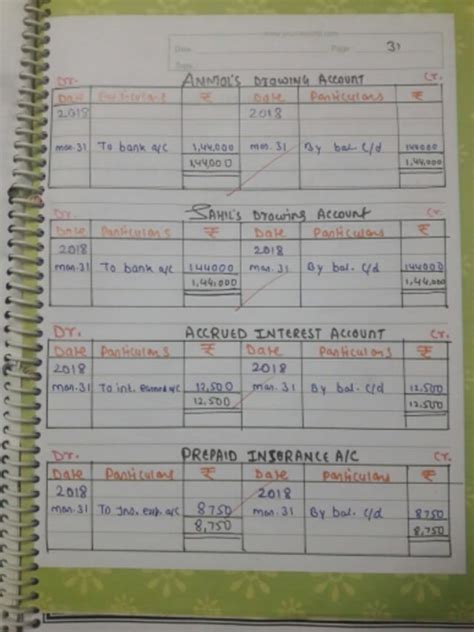 Date Page 31
ANMOL'S DROWING ACCOUNT
Dr. Cr.
Date Particulars ₹ Date Particulars ₹
2018 2018
mar.31 To bank a/c 1,44,000 mar.31 By bal. c/d 144000
1,44,000 1,44,000
SAHIL'S Drowing Account
Dr. Cr.
Date Particulars ₹ Date Particulars ₹
2018 2018
mar.31 To bank a/c 144000 mar.31 By bal. c/d 144000
1,44,000 1,44,000
Dr. ACCRUED INTEREST ACCOUNT Cr.
Date Particulars ₹ Date Particulars ₹
2018 2018
mar.31 To int. earned a/c 12,500 mar.31 By bal. c/d 12,500
12,500 12,500
Dr. PREPAID INSORANCE A/C Cr.
Date Particulars ₹ Date Particulars ₹
2018 2018
mar.31 To Ins. exp. a/c 8750 mar.31 By bal. c/d 8750
8,750 8,750